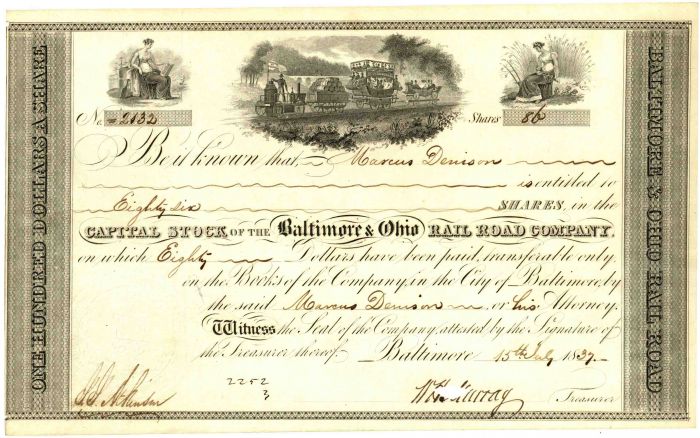 ONE HUNDRED DOLLARS A SHARE
No. 2132
Shares 86
Be it known that, Marcus Denison
is entitled to
Eighty six SHARES, in the
CAPITAL STOCK OF THE Baltimore & Ohio RAIL ROAD COMPANY.
on which Eighty Dollars have been paid, transferable only
on the Books of the Company, in the City of Baltimore, by
the said Marcus Denison or his Attorney.
Witness the Seal of the Company, attested by the Signature of
the Treasurer thereof. Baltimore 15th July 1837
2252
?
Treasurer
BALTIMORE & OHIO RAIL ROAD